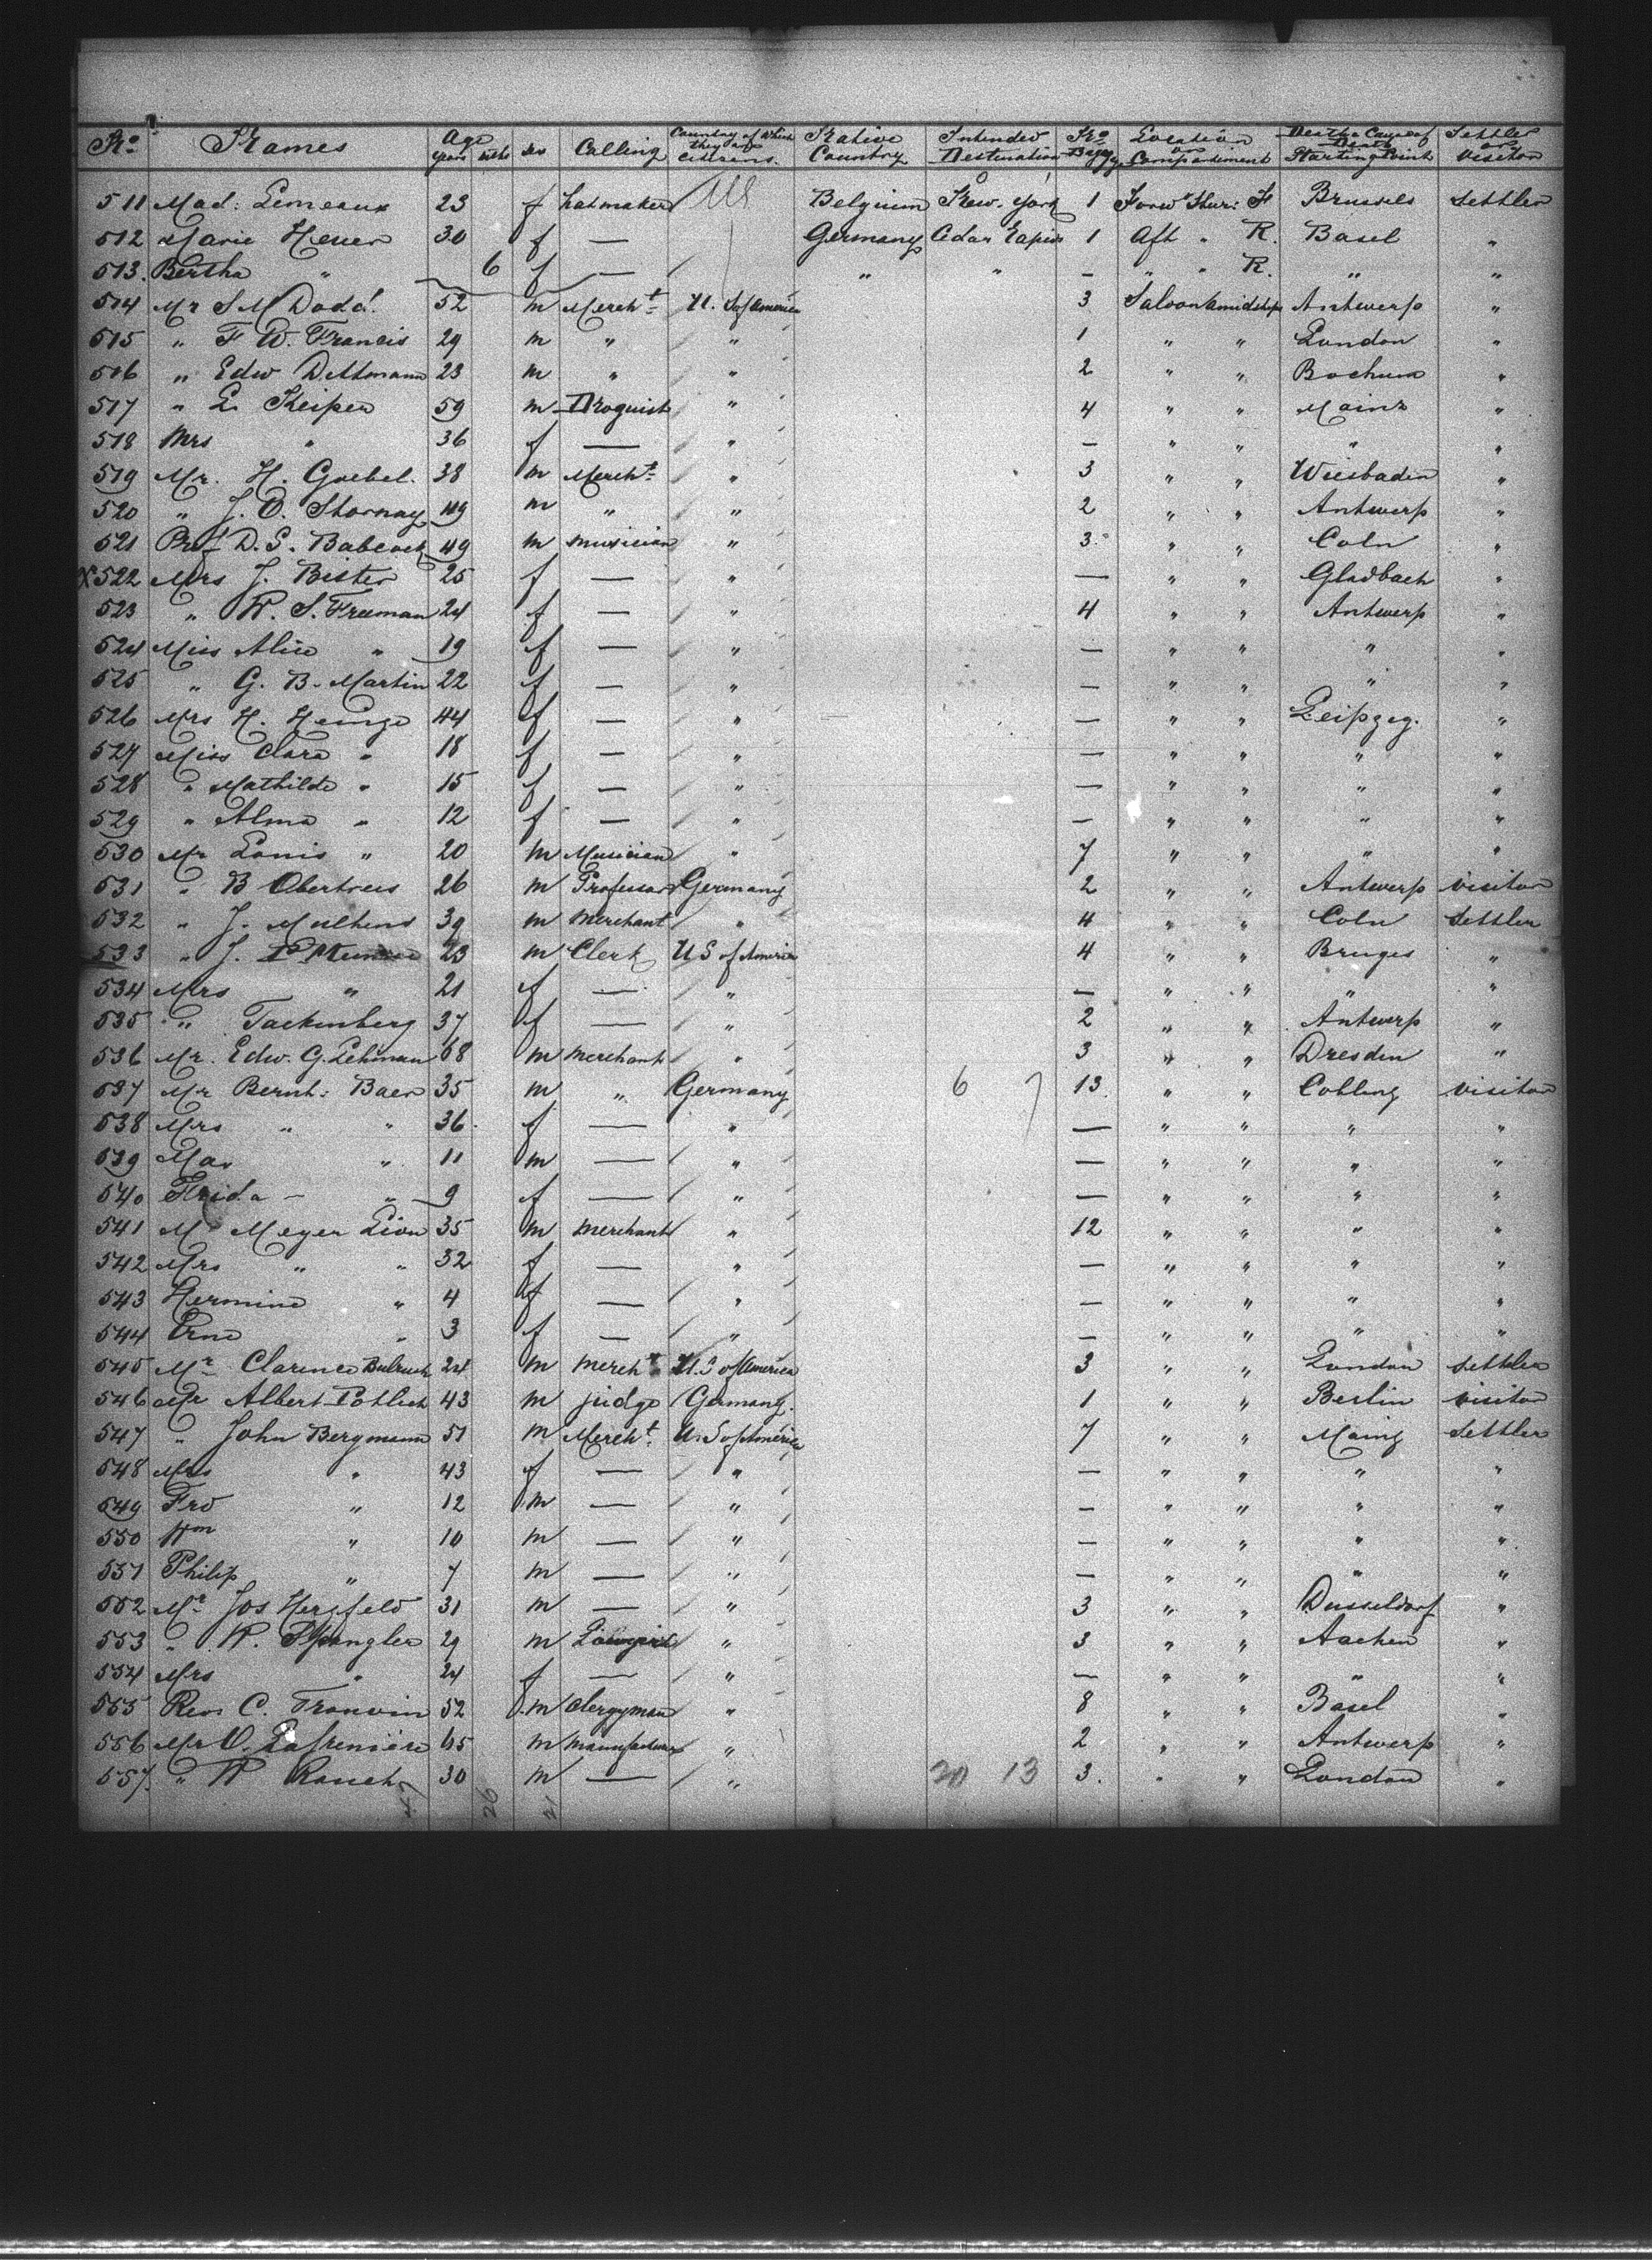 No Names Age years mths sex Calling Country of which they are citizens. Native Country Intended Destination No Bagg. Location or Compartement Starting Point Settler or Visitor
511 Mad: Lemeaux 23 f hatmaker Belgium New-York 1 Forw Stur: F Brussels Settler
512 Marie Heuer 30 f — Germany Cedar Rapids 1 Aft " R. Basel "
513. Bertha " 6 f — " " — " " R. " "
514 Mr S M Dodd. 52 m Mercht U. S of America 3 Saloon amidships Antwerp "
515 " F. W. Francis 29 m " " 1 " " London "
516 " Edw Dettmann 23 m " " 2 " " Bochum "
517 " L. Keiper 59 m Droguist " 4 " " Mainz "
518 Mrs " 36 f — " — " " " "
519 Mr. H. Goebel. 38 m Mercht " 3 " " Wiesbaden "
520 " J. O. Stornay 49 m " " 2 " " Antwerp "
521 Prof D. S. Babcock 49 m musician " 3 " " Coln "
X522 Mrs J. Bister 25 f — " — " " Gladbach "
523 " W. S. Freeman 24 f — " 4 " " Antwerp "
524 Miss Alice " 19 f — " — " " " "
525 " G. B. Martin 22 f — " — " " " "
526 Mrs H. Heinze 44 f — " — " " Leipzeg. "
527 Miss Clara " 18 f — " — " " " "
528 " Mathilde " 15 f — " — " " " "
529 " Alma " 12 f — " — " " " "
530 Mr Louis " 20 m Musician " 7 " " " "
531 " B Obertreis 26 m Professor Germany 2 " " Antwerp visitor
532 " J. Mulhens 39 m Merchant " 4 " " Coln Settler
533 " J. 23 m Clerk U S of America 4 " " Bruges "
534 Mrs " 21 f — " — " " " "
535 " Tackenberg 37 f — " 2 " " Antwerp "
536 Mr. Edw. G. Lehman 68 m merchant " 3 " " Dresden "
537 Mr Bernh: Baer 35 m " Germany 6 7 13. " " Cobling visitor
538 Mrs " " 36. f — " — " " " "
539 Max " 11 m — " — " " " "
540 Frida — " 9 f — " — " " " "
541 M Meyer Lion 35 m merchant " 12 " " " "
542 Mrs " " 32 f — " — " " " "
543 Hermine " 4 f — " — " " " "
544 Erna " 3 f — " — " " " "
545 Mr Clarence 24 m mercht U. S of America 3 " " London Settler
546 Mr Albert 43 m judge Germany. 1 " " Berlin visitor
547 " John Bergmann 51 m Mercht. U. S of America 7 " " Mainz Settler
548 Mrs " 43 f — " — " " " "
549 Frd " 12 m — " — " " " "
550 Wm " 10 m — " — " " " "
551 Philip " 7 m — " — " " " "
552 Mr Jos Herzfeld 31 m — " 3 " " Dusseldorf "
553 " W. Spangler 29 m " 3 " " Aachen "
554 Mrs " 24 f — " — " " " "
555 Rev. C. Tranvin 52 m Clergyman " 8 " " Basel "
556 Mr O. Lafreniere 65 m manufacturer " 2 " " Antwerp "
557. " W Rauch 30 m — " 20 13 3. " " London "
47 26 21